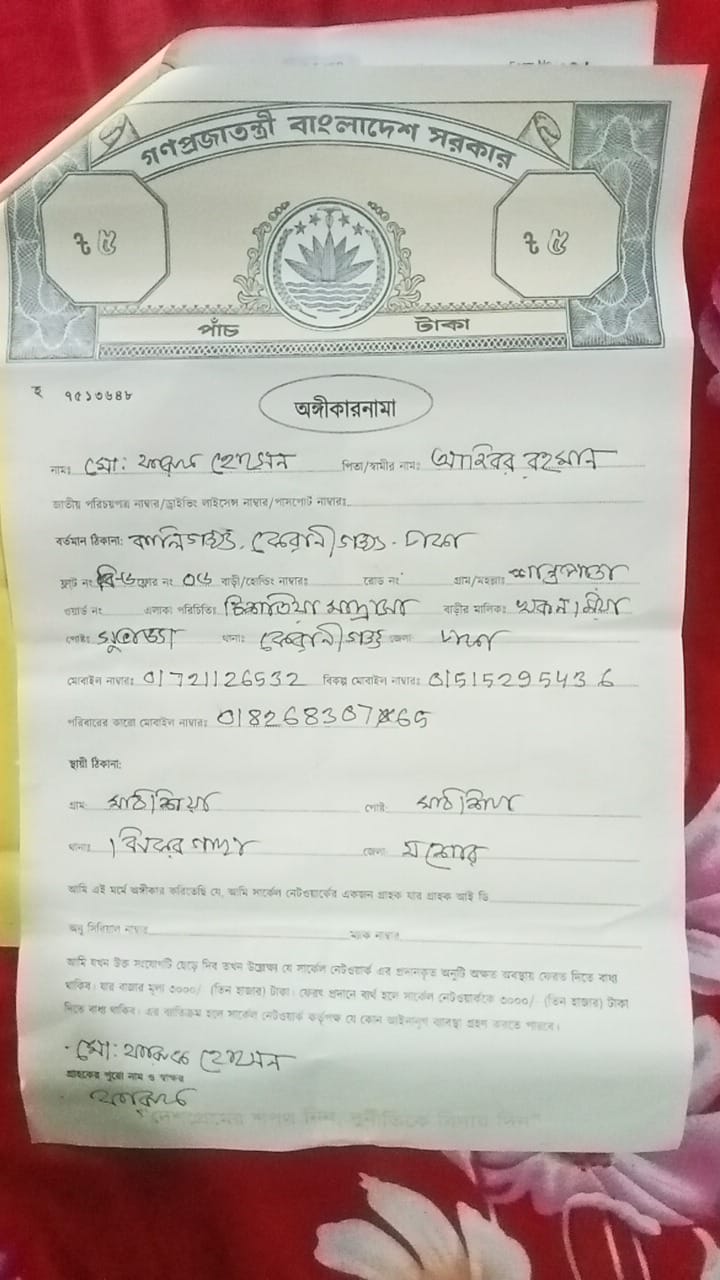 গণপ্রজাতন্ত্রী বাংলাদেশ সরকার
৳ ৫ ৳ ৫
পাঁচ টাকা
হ ৭৫১৩৬৪৮
অঙ্গীকারনামা
নামঃ মো: ফারুক হোসেন পিতা/স্বামীর নাম: রহমান
জাতীয় পরিচয়পত্র নাম্বার/ড্রাইভিং লাইসেন্স নাম্বার/পাসপোর্ট নাম্বারঃ
বর্তমান ঠিকানা: কালিগঞ্জ, কেরানীগঞ্জ, ঢাকা
ফ্লাট নং বি-৬ ফ্লোর নং ০৬ বাড়ী/হোল্ডিং নাম্বারঃ রোড নং গ্রাম/মহল্লাঃ
ওয়ার্ড নং এলাকা পরিচিতিঃ মাদ্রাসা বাড়ীর মালিকঃ মিয়া
পোষ্টঃ শুভাড্যা থানাঃ কেরানীগঞ্জ জেলা ঢাকা
মোবাইল নাম্বারঃ 01721126532 বিকল্প মোবাইল নাম্বারঃ 01515295436
পরিবারের কারো মোবাইল নাম্বারঃ
স্থায়ী ঠিকানা:
গ্রাম: মাঠশিয়া পোষ্ট: মাঠশিয়া
থানাঃ ঝিকরগাছা জেলা: যশোর
আমি এই মর্মে অঙ্গীকার করিতেছি যে, আমি সার্কেল নেটওয়ার্কের একজন গ্রাহক যার গ্রাহক আই ডি
অনু সিরিয়াল নাম্বার ম্যাক নাম্বার
আমি যখন উক্ত সংযোগটি ছেড়ে দিব তখন উল্লেখ্য যে সার্কেল নেটওয়ার্ক এর প্রদানকৃত অনুটি অক্ষত অবস্থায় ফেরত দিতে বাধ্য
থাকিব। যার বাজার মূল্য ৩০০০/ (তিন হাজার) টাকা। ফেরৎ প্রদানে ব্যর্থ হলে সার্কেল নেটওয়ার্ককে ৩০০০/ (তিন হাজার) টাকা
দিতে বাধ্য থাকিব। এর ব্যতিক্রম হলে সার্কেল নেটওয়ার্ক কর্তৃপক্ষ যে কোন আইনানুগ ব্যবস্থা গ্রহণ করতে পারবে।
মো: ফারুক হোসেন
গ্রাহকের পুরো নাম ও স্বাক্ষর
ফারুক
"দেশপ্রেমের শপথ নিন, দুর্নীতিকে বিদায় দিন"